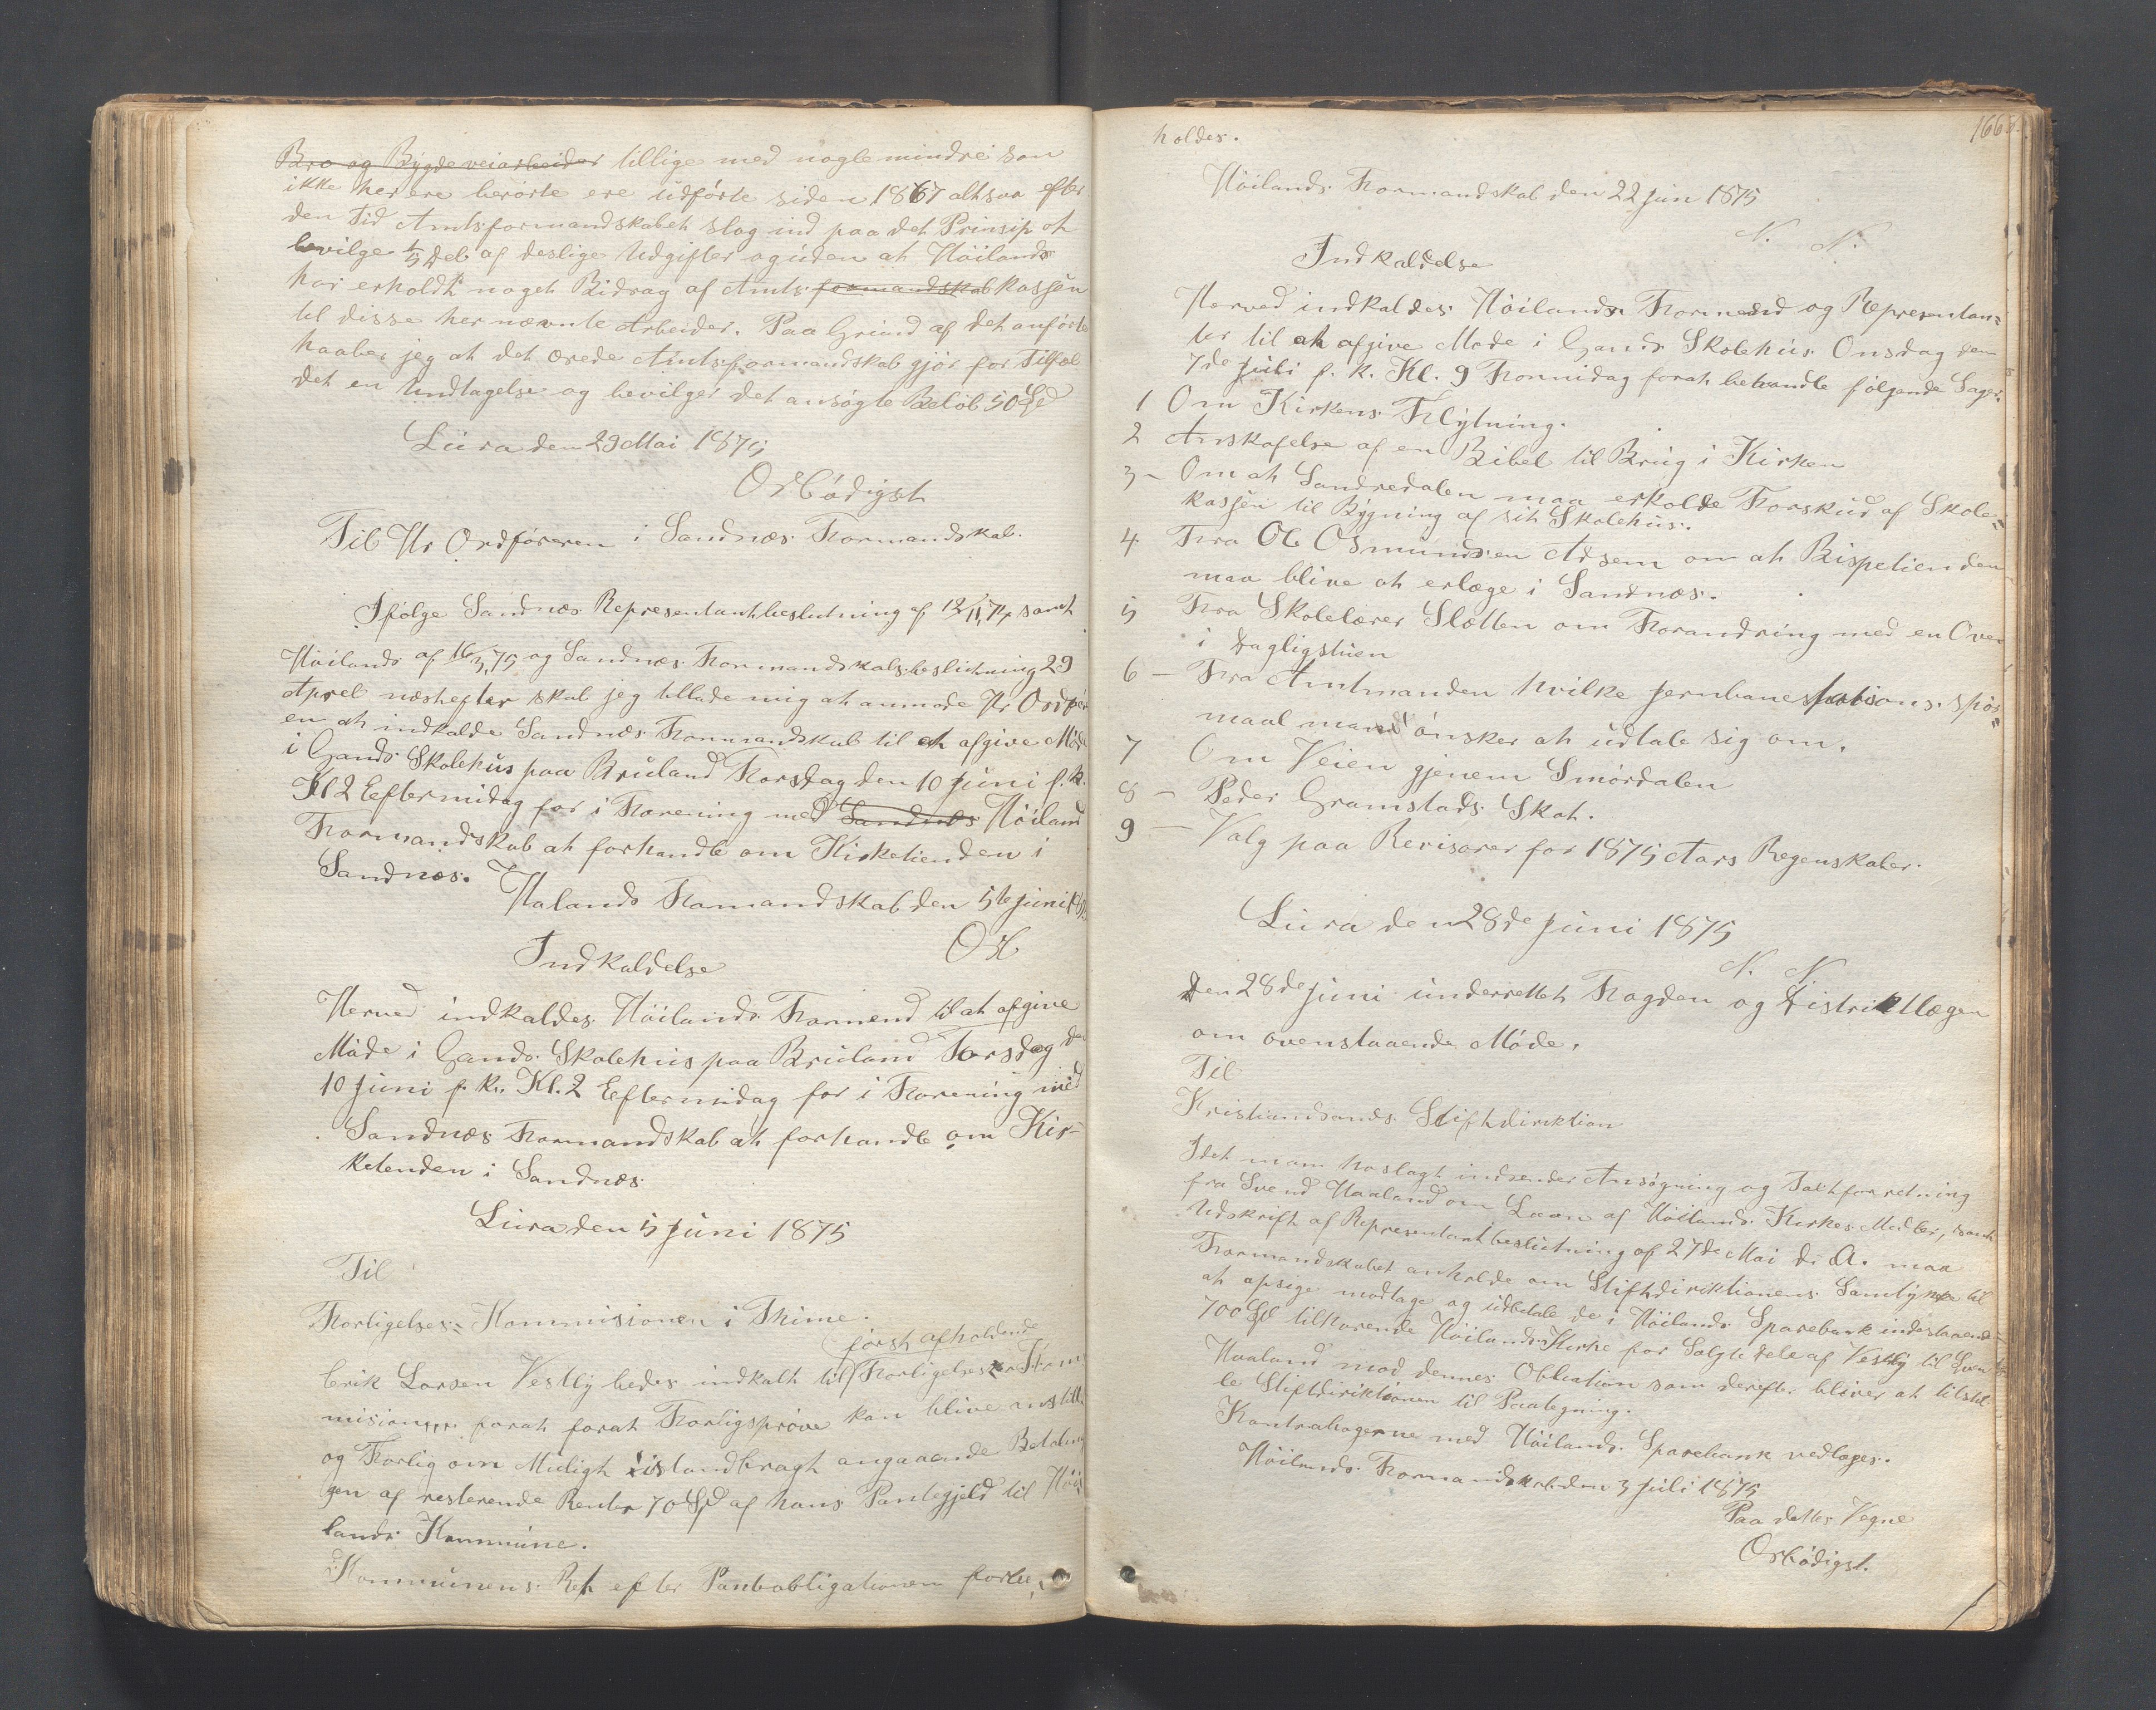 Bro og Bygdeveiarbeider tillige med nogle mindre son
ikke her ere berørte ere udførte siden 1867 altsaa efter
den Tid Amtsformandskabet slog ind paa det Prinsip at
bevilge 1/5 Del af deslige Udgifter og uden at Høilands
har erholdt noget Bidrag af Amts formandskab kassen
til disse her nævnte Arbeider. Paa Grund af det anførte
haaber jeg at det ærede Amtsformandskab gjør for Tilfæl
det en Undtagelse og bevilger det ansøgte Beløb 50 Spd
Lura den 29 Mai 1875
Ærbødigst
Til Hr Ordføreren i Sandnæs Formandskab.
Ifølge Sandnæs Representantbeslutning af 12/11,74 samt
Høilands af 16/3,75 og Sandnæs Formandskabsbeslutning 29
Aprel næstefter skal jeg tillade mig at anmode Hr Ordfør
en at indkalde Sandnæs Formandskab til at afgive Møde
i Gands Skolehus paa Bruland Torsdag den 10 Juni f. k.
Kl 2 Eeftermidag for i Forening med Sandnæs Høiland
Formandskab at forhandle om Kirketienden i
Sandnæs.
Halands Formandskab den 5te Juni
O H
Indkaldelse
Herved indkaldes Høilands Formend til at afgive
Møde i Gands Skolehus paa Bruland Torsdag den
10 Juni f. k. Kl. 2 Eeftermidag for i Forening med
Sandnæs Formandskab at forhandle om Kir-
ketenden i Sandnæs
Lura den 5 Juni 1875
Til
Forligelses- Kommisionen i Thime.
først afholdende
Eerik Larsen Vestly bedes indkalt til Forligelses Kom
mision forat forat Forligsprøve kan blive anstillet
og Forlig om Muligt istandbragt angaaende Betalin
gen af resterende Renter 70 Spd af hans Pantegjeld til Høi
lands Kommune.
Kommunens Ret efter Pantobligationen forbe-
166
holdes.
Høilands Formandskab den 22 Juni 1875
N. N.
Indkaldelse
Herved indkaldes Høilands Formend og Representan-
ter til at afgive Møde i Gands Skolehus Onsdag den
7de Juli f. k. Kl. 9 Formidag forat behandle følgende Sager.
1 Om Kirkens Flytning.
2 Anskafelse af en Bibel til Brug i Kirken
3 - Om at Sandredalen maa erholde Forskud af Skole-
kassen til Bygning af sit Skolehus.
4 Fra Ole Osmundsen Adsem om at Bispetienden
maa blive at erlæge i Sandnæs.
5 Fra Skolelærer Sletten om Forandring med en Oven
i Dagligstuen
6 - Fra Amtmanden hvilke Jernbanestations spørs-
maal mand ønsker at udtale sig om.
7 Om Veien gjenem Smørdalen
8 - Peder Gramstads Skat.
9 - Valg paa Revisorer for 1875 Aars Regenskaber.
Lura den 28de Juni 1875
N. N.
Den 28de Juni underrettet Fogden og Distriktlægen
om ovenstaaende Møde.
Til
Kristiandsands Stiftdirektion
Idet mam hoslagt indsender Ansøgning og Taxtforretning
fra Svend Haaland om Laan af Høilands Kirkes Midler, samt
Udskrift af Representantbeslutning af 27de Mai d. A. maa
Formandskabet anholde om Stiftdirektionens Samtykke til
at opsige modtage og udbetale de i Høilands Sparebank indestaaende
700 Spd tilhørende Høilands Kirke for Solgte dele af Vestly til Svend
Haaland mod dennes Obligation som derefter bliver at tilstil
le Stiftdirektionen til Paategning.
Kontrabogerne med Høilands Sparebank vedlæges.
Høilands Formandskab den 3 Juli 1875
Paa dettes Vegne
Ærbødigst.